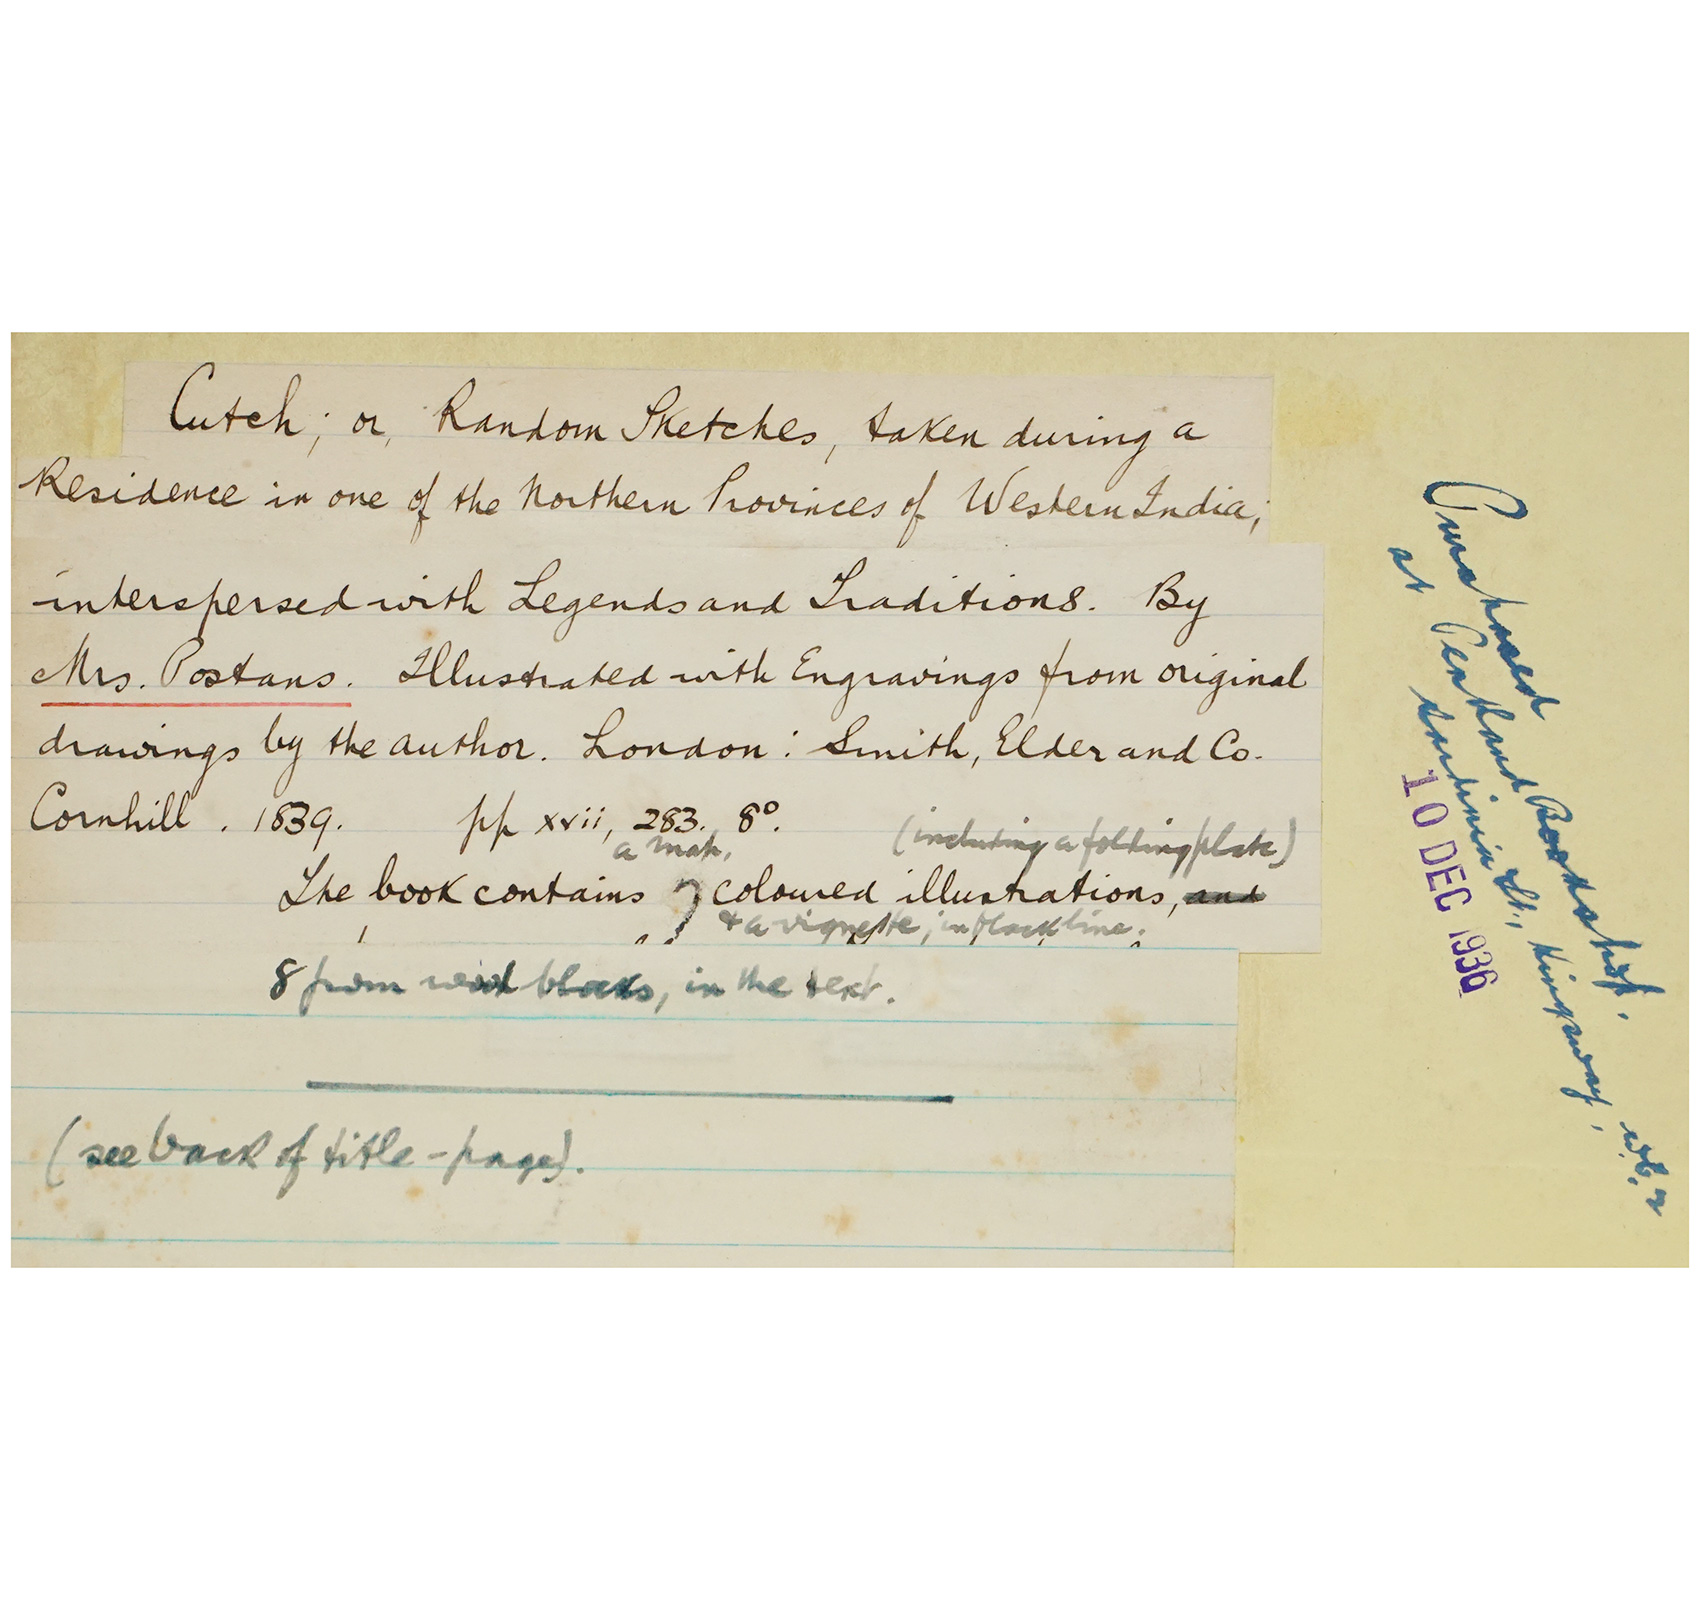 Cutch; or, Random Sketches, taken during a
Residence in one of the Northern Provinces of Western India;
interspersed with Legends and Traditions. By
Mrs. Postans. Illustrated with Engravings from original
drawings by the author. London: Smith, Elder and Co.
Cornhill. 1839. pp xvii, 283. 8º.
a map, (including a folding plate)
The book contains 7 coloured illustrations, and
& a vignette, in black line.
8 from wood blocks, in the text.
(see back of title-page).
Purchased
at Pentland Bookshop.
Sardinia St., Kingsway, W.C.2
10 DEC 1936